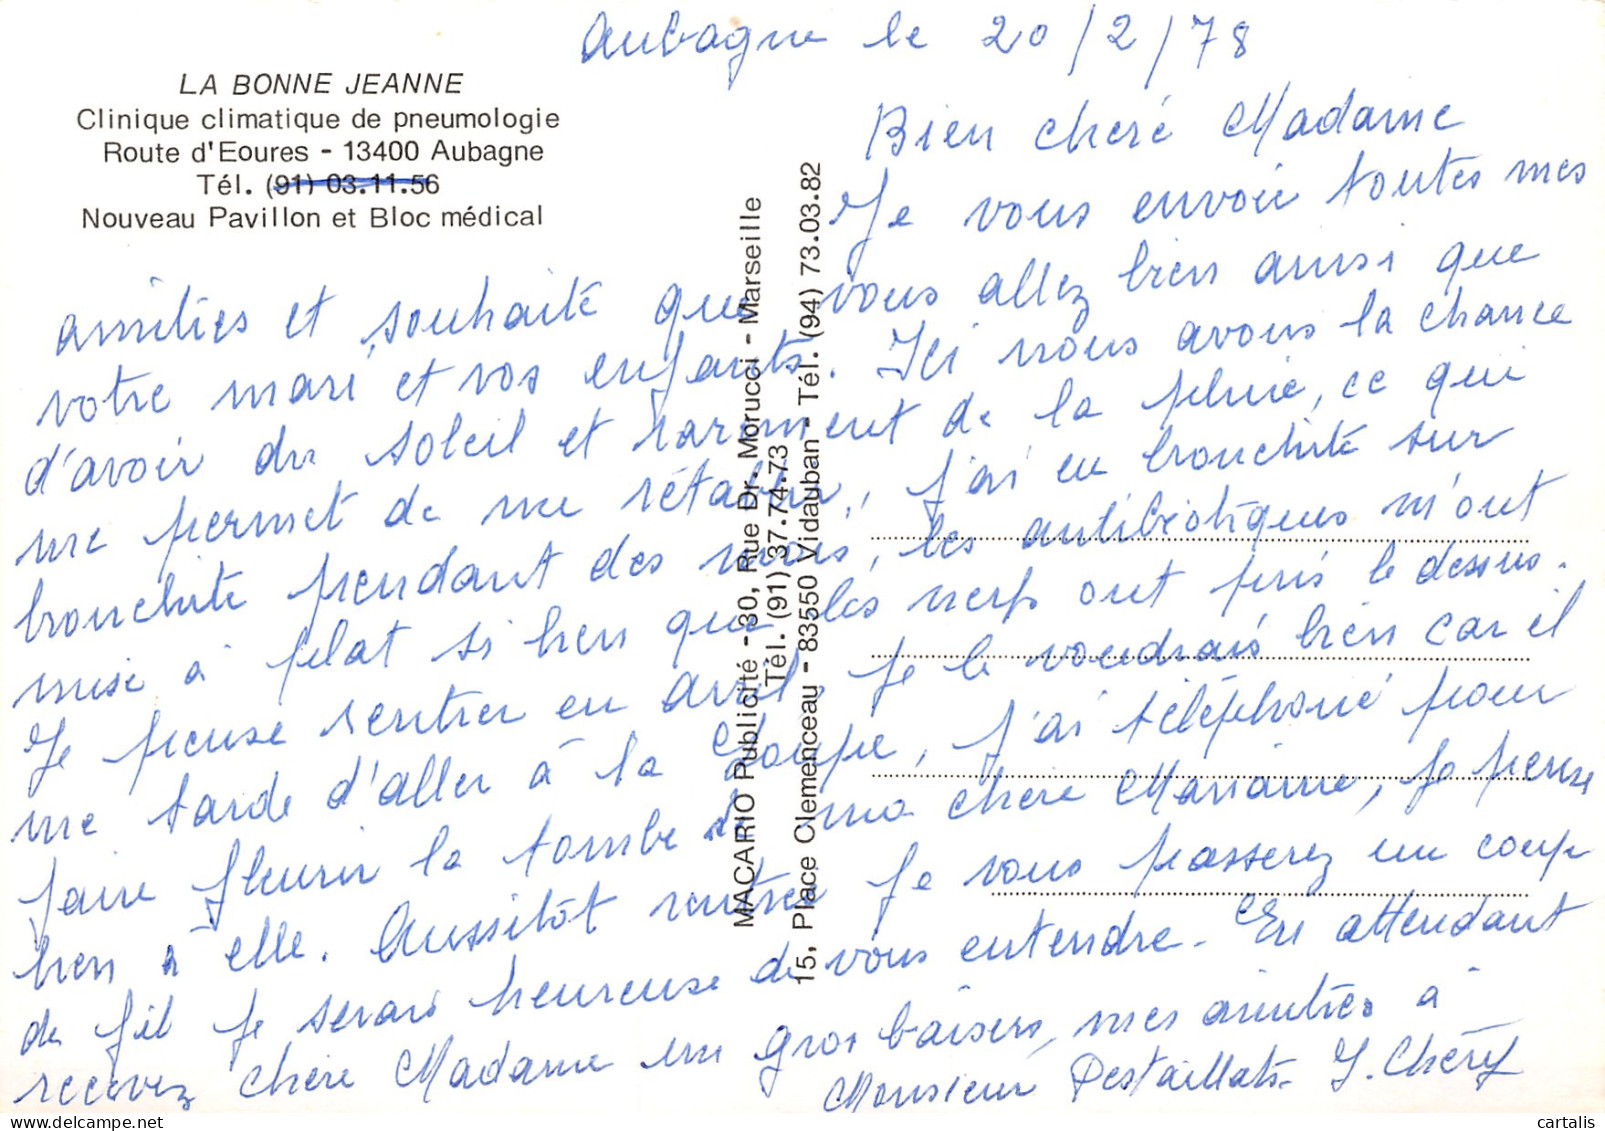 Aubagne le 20/2/78
LA BONNE JEANNE
Clinique climatique de pneumologie
Route d'Eoures - 13400 Aubagne
Tél. (91) 03.11.56
Nouveau Pavillon et Bloc médical
MACARIO Publicité - 30, Rue Dr. Morucci - Marseille
Tél. (91) 37.74.73
15, Place Clemenceau - 83550 Vidauban - Tél. (94) 73.03.82
Bien cheré Madame
Je vous envoie toutes mes
amitiés et souhaité que vous allez bien ainsi que
votre mari et vos enfants. Ici nous avons la chance
d'avoir du soleil et rarement de la pluie, ce qui
me permet de me rétablir, j'ai eu bronchite sur
bronchite pendant des mois, les antibiotiques m'ont
mise à plat si bien que les nerfs ont pris le dessus.
Je pense rentrer en avril, je le voudrais bien car il
me tarde d'aller à la Loupe, j'ai téléphoné pour
faire fleurir la tombe de ma chère Marianne, je pense
bien à elle. Aussitôt rentrée je vous passerez un coup
de fil je serais heureuse de vous entendre. En attendant
recevez chère Madame un gros baisers, mes amitiés à
Monsieur Pestaillats. J. Chéref
cartalis